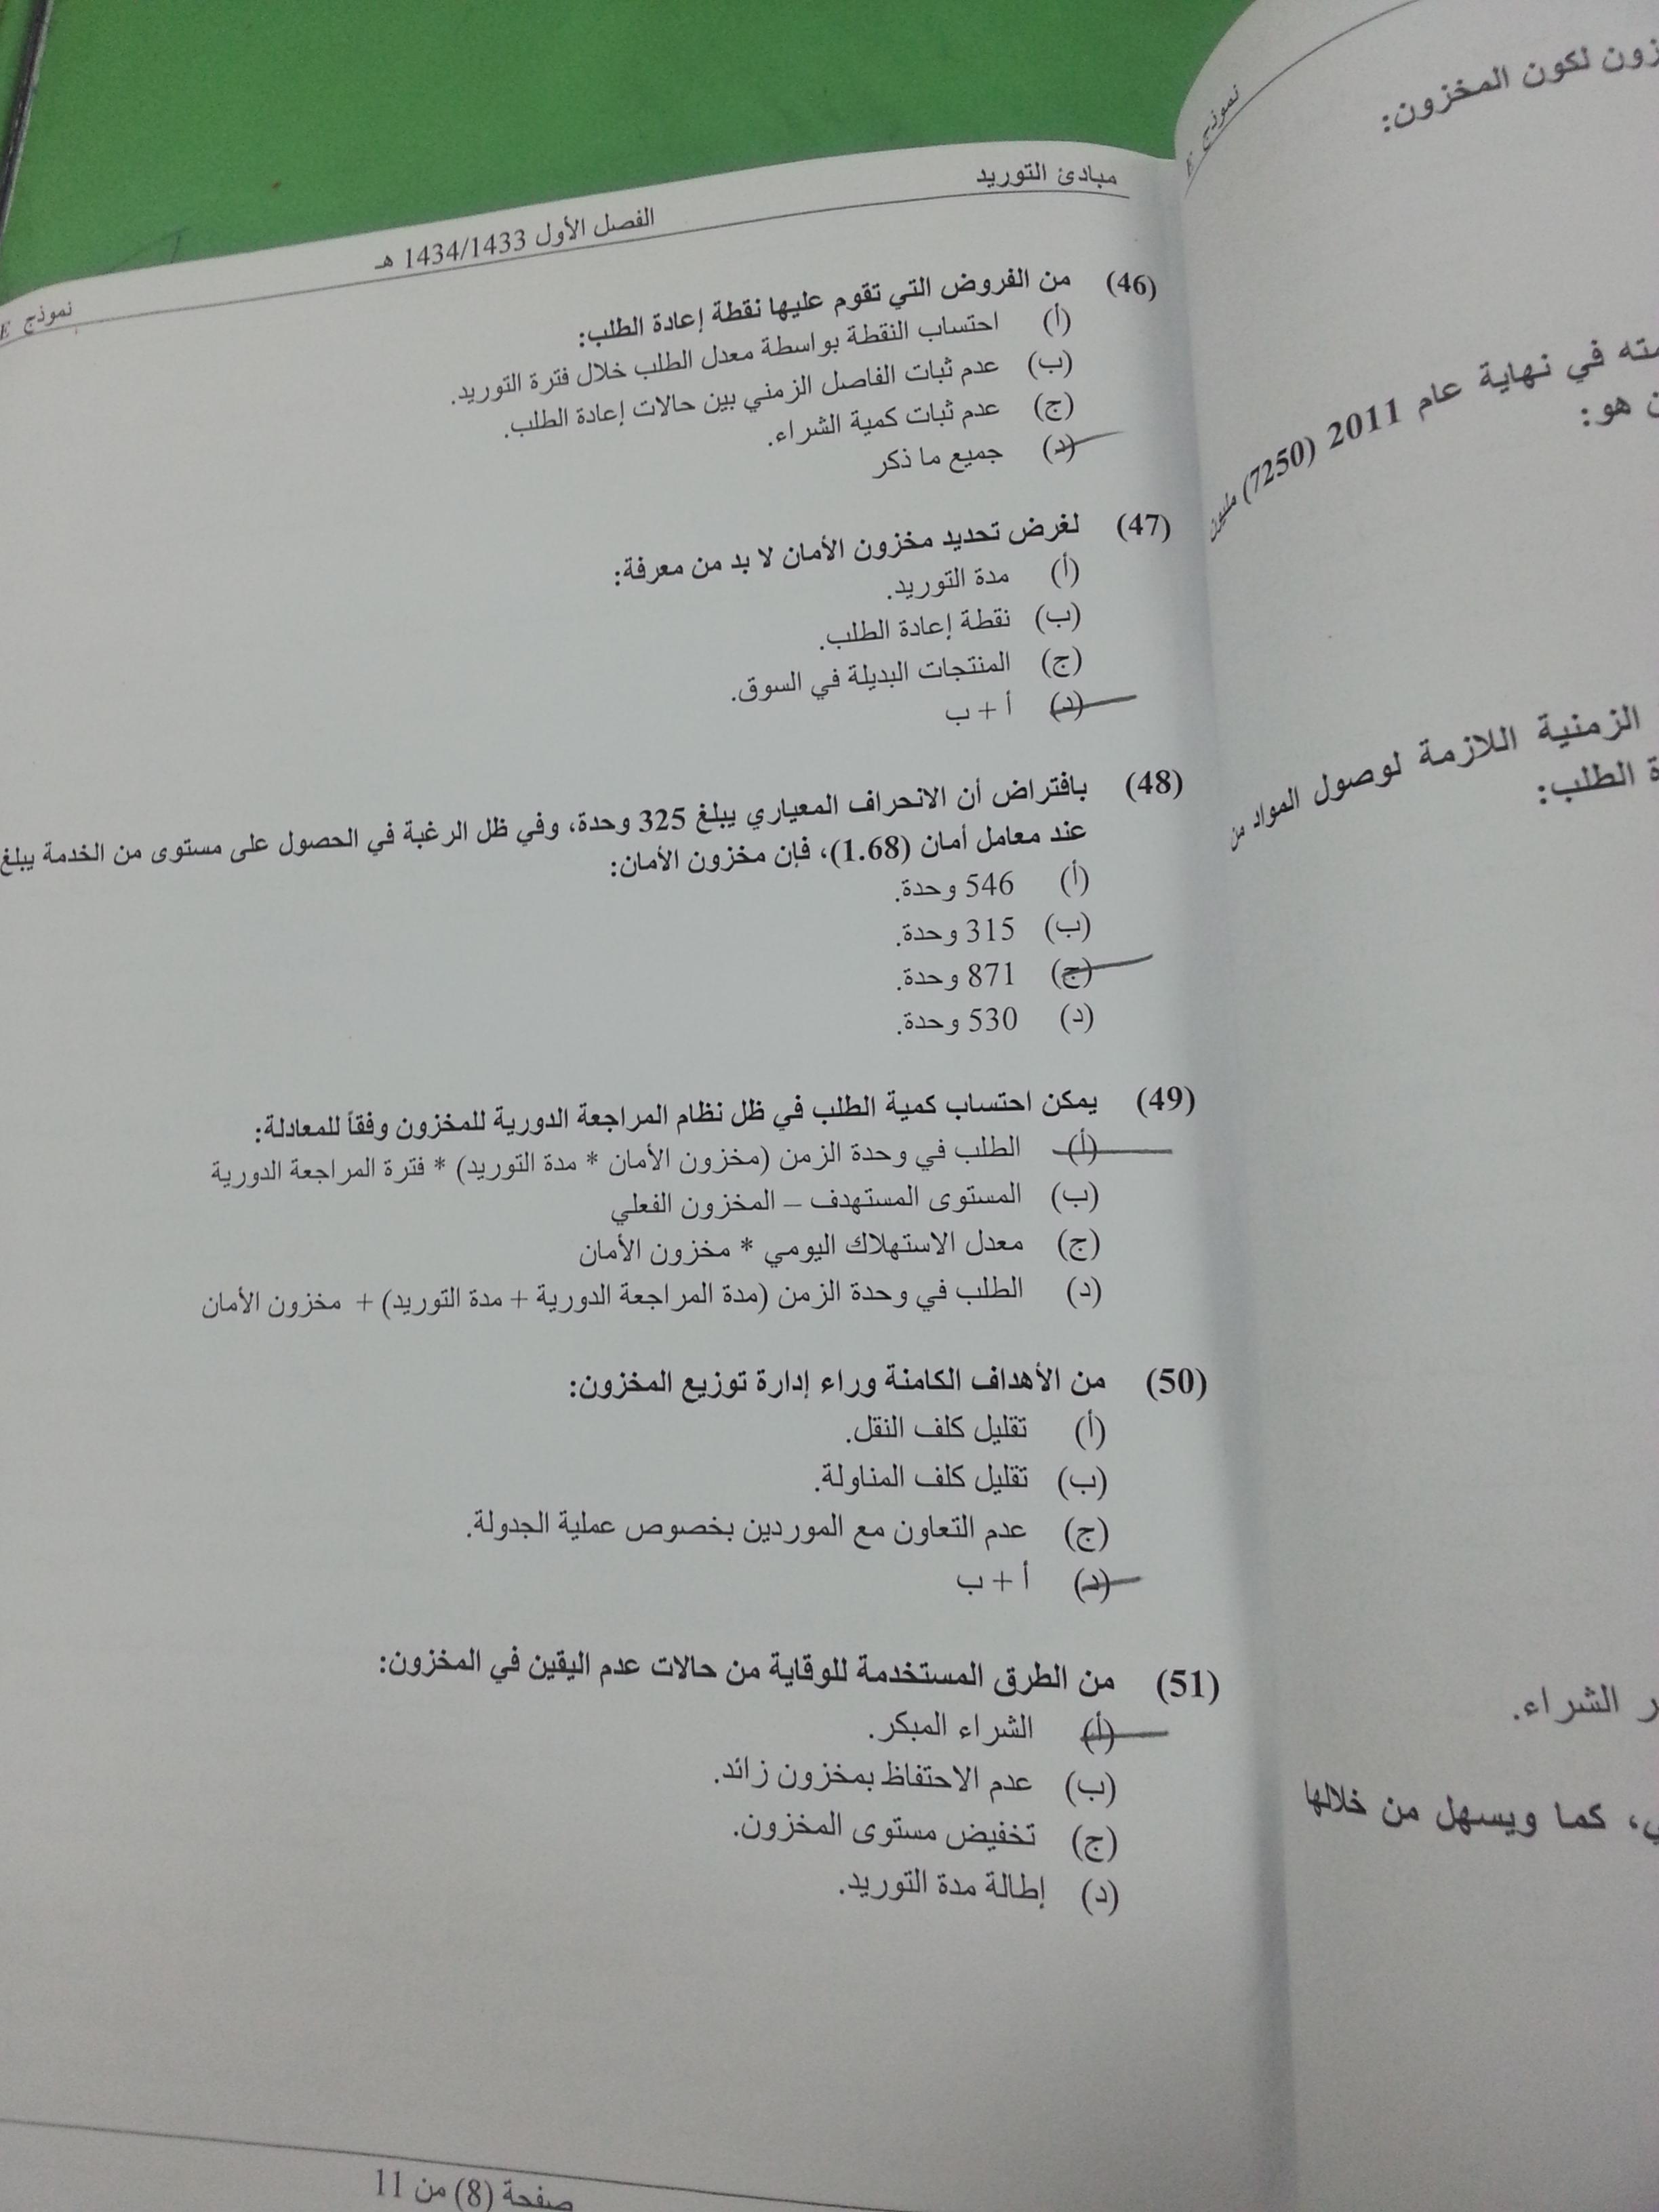 مبادئ التوريد
الفصل الأول 1434/1433 هـ
نموذج E
(46) من الفروض التي تقوم عليها نقطة إعادة الطلب:
(أ) احتساب النقطة بواسطة معدل الطلب خلال فترة التوريد.
(ب) عدم ثبات الفاصل الزمني بين حالات إعادة الطلب.
(ج) عدم ثبات كمية الشراء.
(د) جميع ما ذكر
(47) لغرض تحديد مخزون الأمان لا بد من معرفة:
(أ) مدة التوريد.
(ب) نقطة إعادة الطلب.
(ج) المنتجات البديلة في السوق.
(د) أ + ب
(48) بافتراض أن الانحراف المعياري يبلغ 325 وحدة، وفي ظل الرغبة في الحصول على مستوى من الخدمة يبلغ
عند معامل أمان (1.68)، فإن مخزون الأمان:
(أ) 546 وحدة.
(ب) 315 وحدة.
(ج) 871 وحدة.
(د) 530 وحدة.
(49) يمكن احتساب كمية الطلب في ظل نظام المراجعة الدورية للمخزون وفقاً للمعادلة:
(أ) الطلب في وحدة الزمن (مخزون الأمان * مدة التوريد) * فترة المراجعة الدورية
(ب) المستوى المستهدف – المخزون الفعلي
(ج) معدل الاستهلاك اليومي * مخزون الأمان
(د) الطلب في وحدة الزمن (مدة المراجعة الدورية + مدة التوريد) + مخزون الأمان
(50) من الأهداف الكامنة وراء إدارة توزيع المخزون:
(أ) تقليل كلف النقل.
(ب) تقليل كلف المناولة.
(ج) عدم التعاون مع الموردين بخصوص عملية الجدولة.
(د) أ + ب
(51) من الطرق المستخدمة للوقاية من حالات عدم اليقين في المخزون:
(أ) الشراء المبكر.
(ب) عدم الاحتفاظ بمخزون زائد.
(ج) تخفيض مستوى المخزون.
(د) إطالة مدة التوريد.
صفحة (8) من 11
نموذج E
لكون المخزون:
في نهاية عام 2011 (7250) مليون
هو:
الزمنية اللازمة لوصول المواد من
الطلب:
الشراء.
كما ويسهل من خلالها